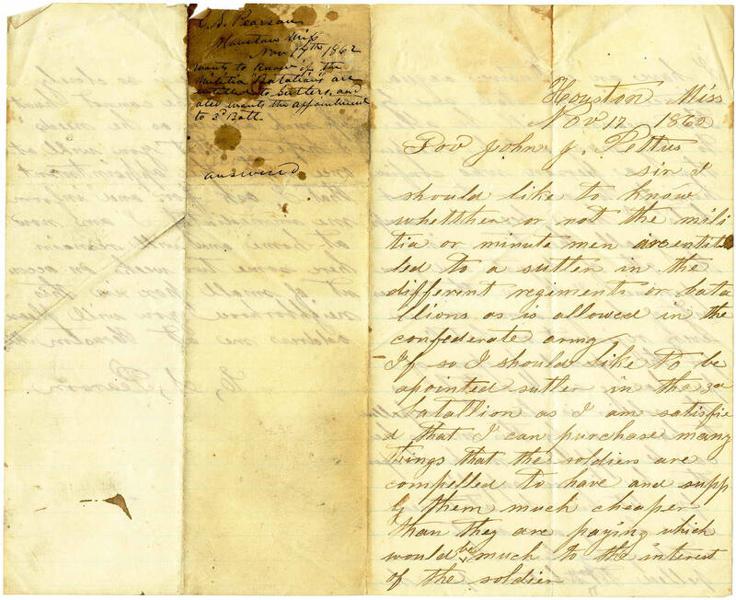 Pearson
Houston Miss
Nov 17th 1862
wants to know if the
Militia Batalions are
entitled to Sutlers, and
also wants the appointment
to 3d Batt.
answered
Houston Miss
Nov 17 1862
Gov John J. Pettus
sir I
should like to know
whetther or not the mili
tia or minute men are entit
led to a sutler in the
different regiments or bata
llions as is allowed in the
confederate army
If so I should like to be
apointed sutler in the 3rd
batallion as I am satisfie
d that I can purchase many
things that the soldiers are
compelled to have and supp
ly them much cheaper
than they are paying which
would be much to the interest
of the soldier